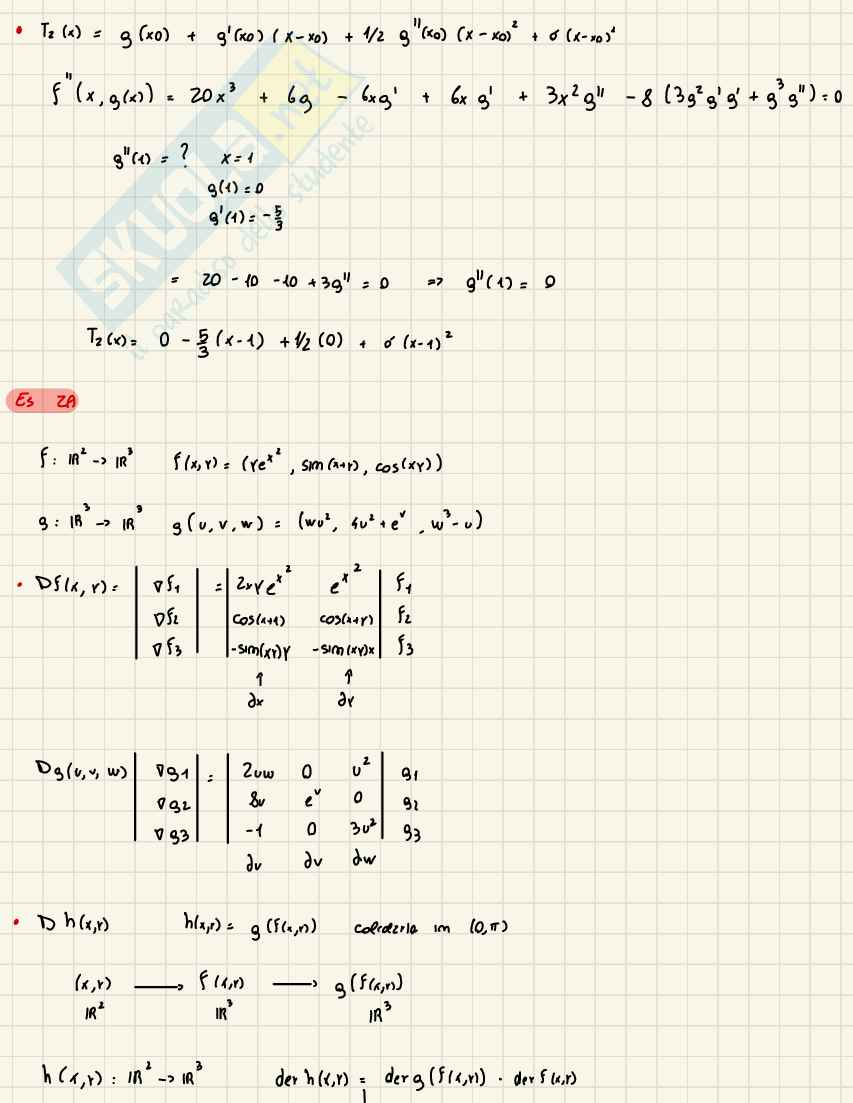 • T₂(x) = g(x0) + g'(x0) (x-x0) + 1/2 g''(x0) (x-x0)² + σ(x-x0)²
f''(x, g(x)) = 20x³ + 6g - 6xg' + 6x g' + 3x²g'' - 8 (3g²g'g' + g³g'') = 0
g''(1) = ? x = 1
g(1) = 0
g'(1) = -5/3
= 20 - 10 - 10 + 3g'' = 0 => g''(1) = 0
T₂(x) = 0 - 5/3 (x-1) + 1/2 (0) + σ(x-1)²
Es 2A
f: IR² -> IR³ f(x,y) = (ye^x², sim(x+y), cos(xy))
g: IR³ -> IR³ g(u,v,w) = (wu², 4u²+e^v, w³-u)
• Df(x,y) = | ∇f1 | = | 2xye^x² e^x² | f1
| ∇f2 | | cos(x+y) cos(x+y) | f2
| ∇f3 | | -sim(xy)y -sim(xy)x | f3
↑ ↑
∂x ∂y
Dg(u,v,w) | ∇g1 | = | 2uw 0 u² | g1
| ∇g2 | | 8u e^v 0 | g2
| ∇g3 | | -1 0 3u² | g3
∂u ∂v ∂w
• D h(x,y) h(x,y) = g(f(x,y)) im (0,π)
(x,y) ⟶ f(x,y) ⟶ g(f(x,y))
IR² IR³ IR³
h(x,y): IR² -> IR³ der h(x,y) = der g(f(x,y)) · der f(x,y)
SKUOLA.net
il paradiso dello studente